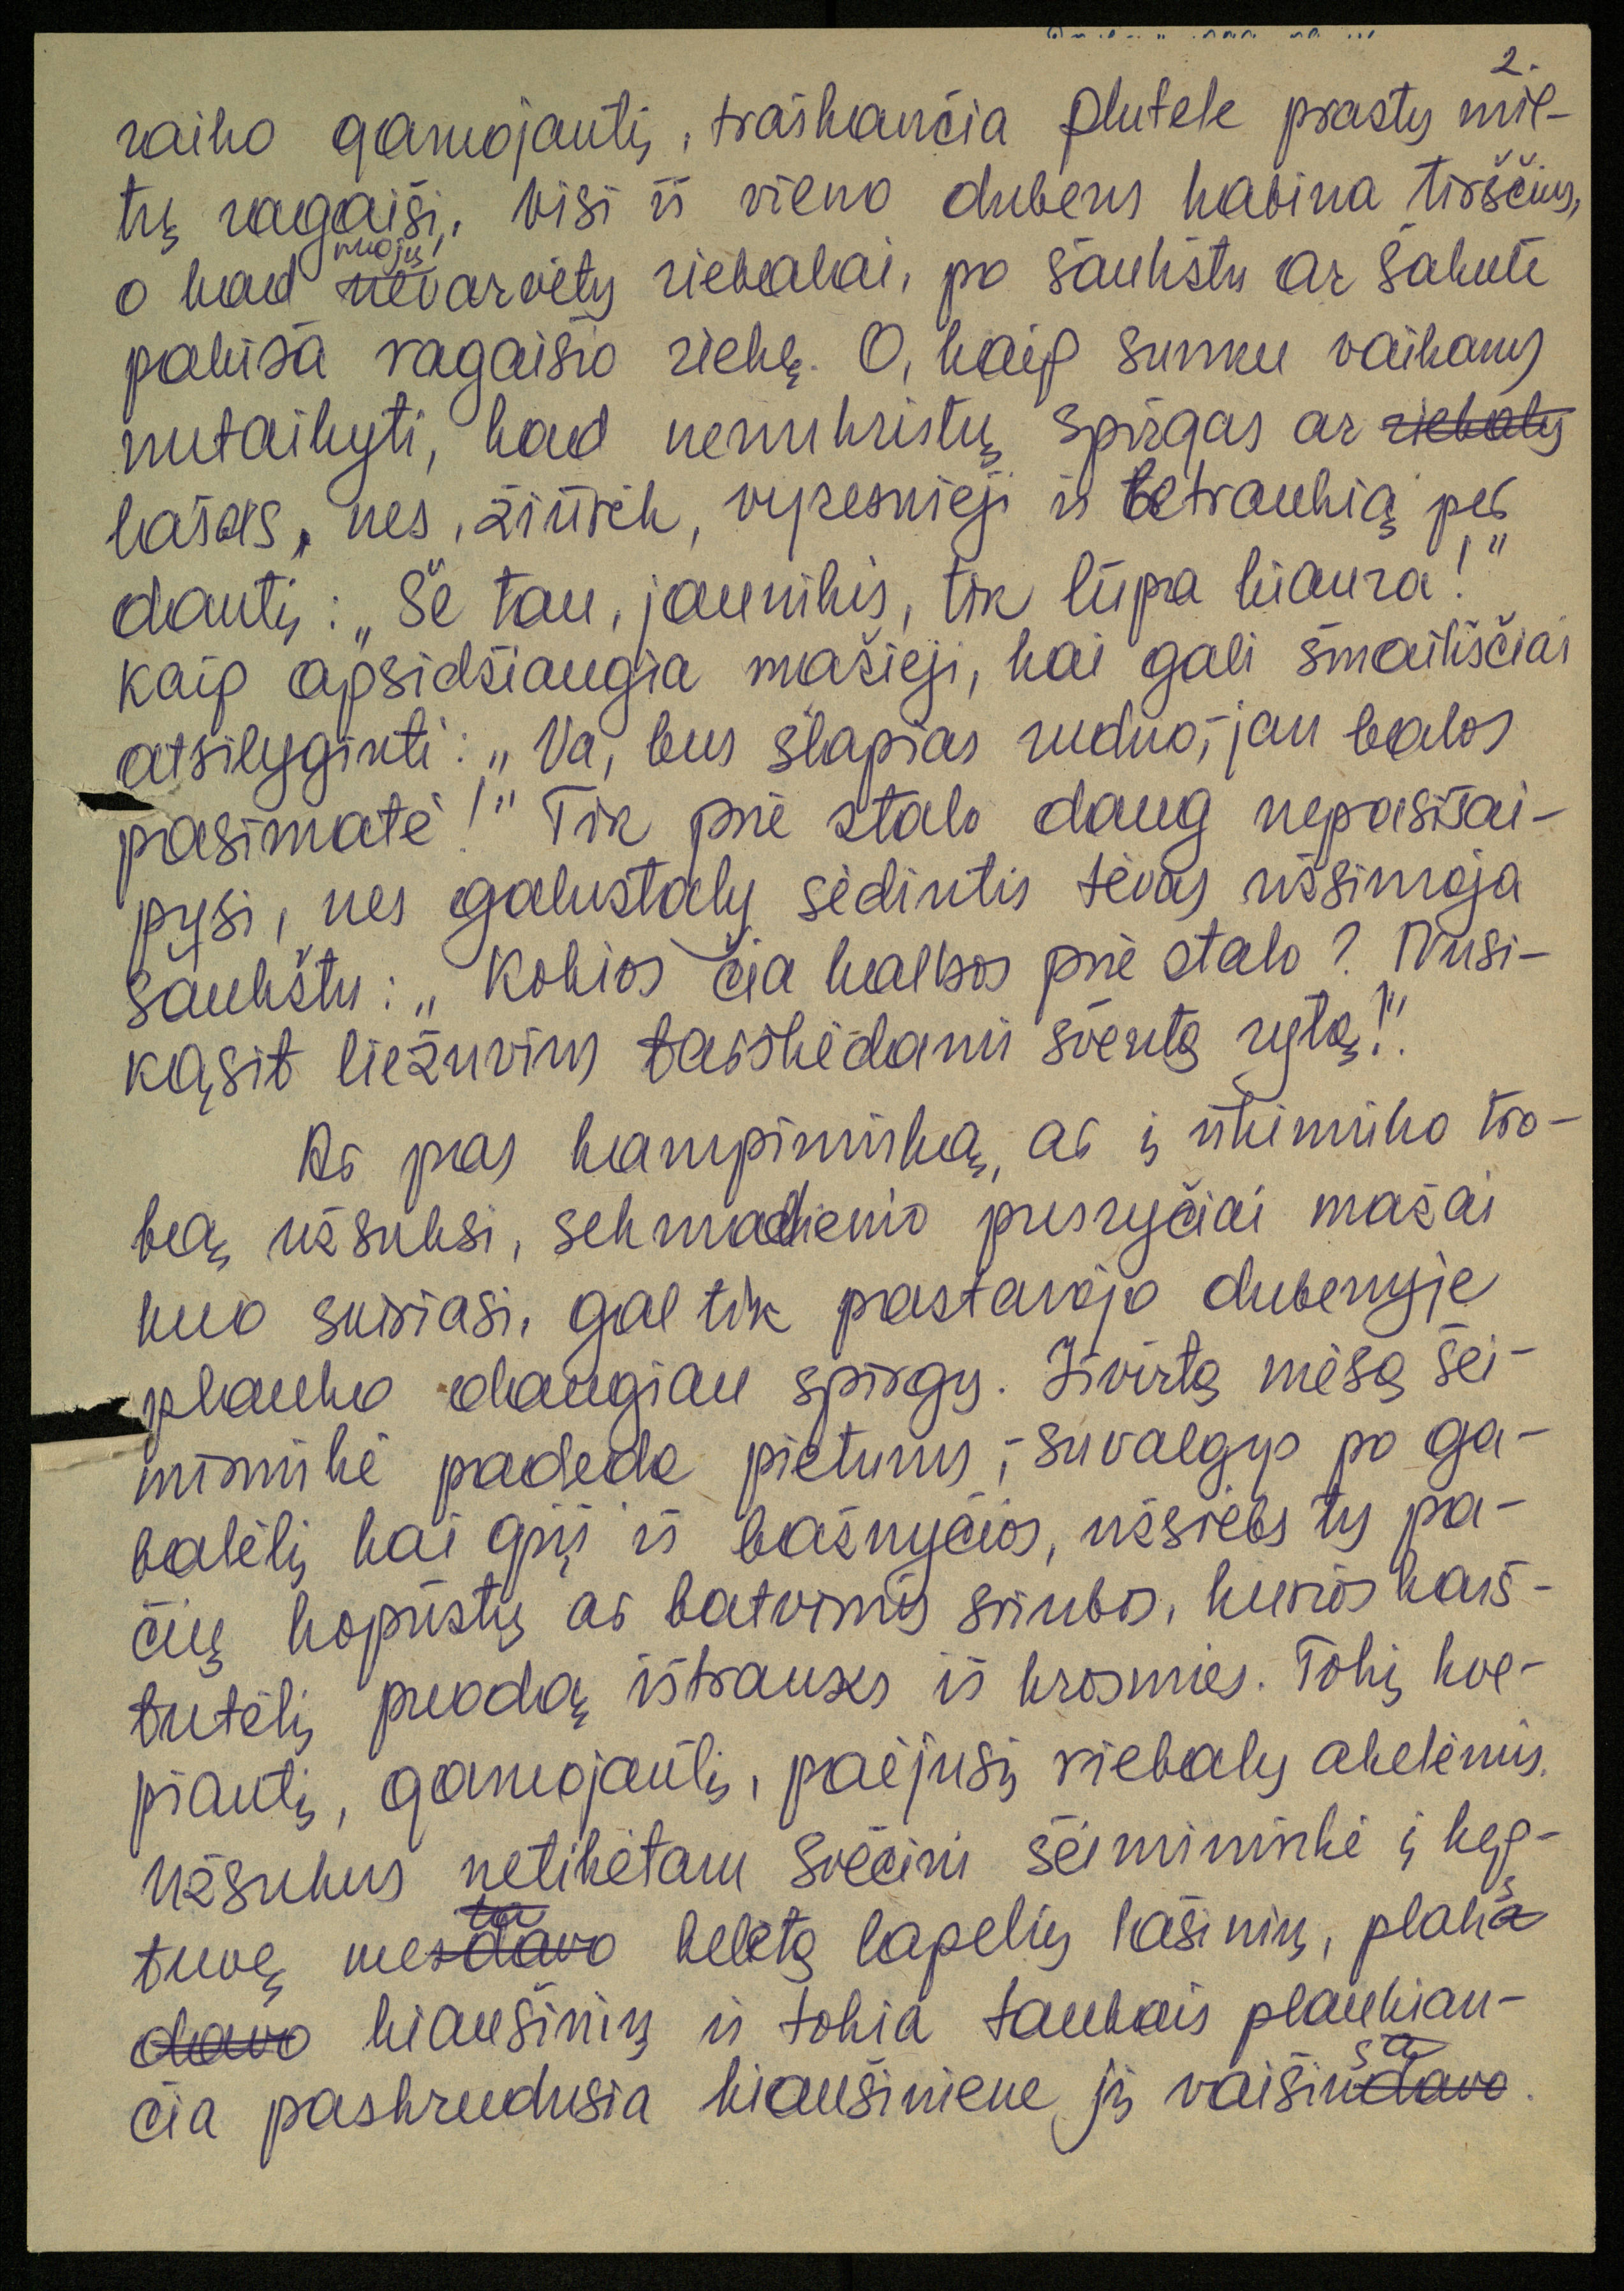 2.
raiko garuojantį, traškančia plutele prastų mil-
tų ragaišį, visi iš vieno dubens kabina tirščius,
o kad nuo jų nevarvėtų riebalai, po šaukštu ar šakute
pakiša ragaišio riekę. O, kaip sunku vaikams
nutaikyti, kad nenukristų spirgas ar riebalų
lašas, nes, žiūrėk, vyresnieji ir betraukią per
dantį: „Še tau, jaunikis, tik lūpa kiaura!"
Kaip apsidžiaugia mažieji, kai gali šmaikščiai
atsilyginti: „Va, bus šlapias ruduo, - jau balos
pasimatė!" Tik prie stalo daug nepasišai-
pysi, nes galustaly sėdintis tėvas užsimoja
šaukštu: „Kokios čia kalbos prie stalo? Nusi-
kąsit liežuvius tarškėdami šventą rytą!".
Ar pas kampininką, ar į ūkininko tro-
bą užsuksi, sekmadienio pusryčiai mažai
kuo skiriasi, gal tik pastarojo dubenyje
plauko daugiau spirgų. Išvirtą mėsą šei-
mininkė padeda pietums, - suvalgys po ga-
balėlį kai grįš iš bažnyčios, užsrėbs tų pa-
čių kopūstų ar batvinių sriubos, kurios karš-
tutėlį puodą ištrauks iš krosnies. Tokį kve-
piantį, garuojantį, paėjusį riebalų akelėmis.
Užsukus netikėtam svečiui šeimininkė į kep-
tuvę mesdavo ta keletą lapelių lašinių, plaka s
davo kiaušinių ir tokia taukais plaukian-
čia paskrudusia kiaušiniene jį vaišindavo ša.